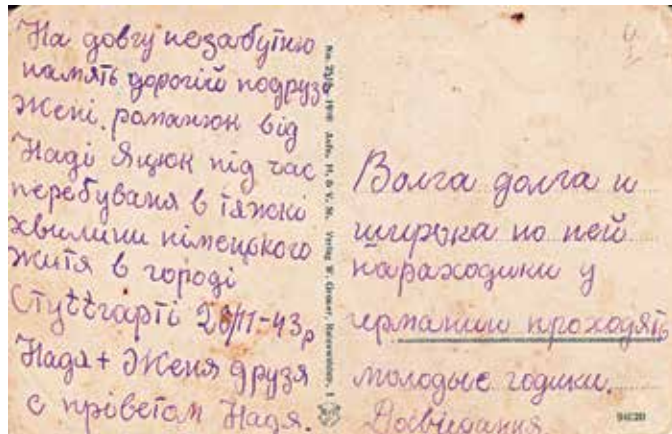 На довгу незабутню
память дорогій подрузі
Жені. романюк від
Наді Яцюк під час
перебуваня в тяжкі
хвилини німецького
житя в городі
Стуttгарті 28/11-43р
Надя + Женя друзя
с прівєтом Надя.
Волга долга и
широка по ней
параходики у
германии проходять
молодые годики.
Досвідания
94620